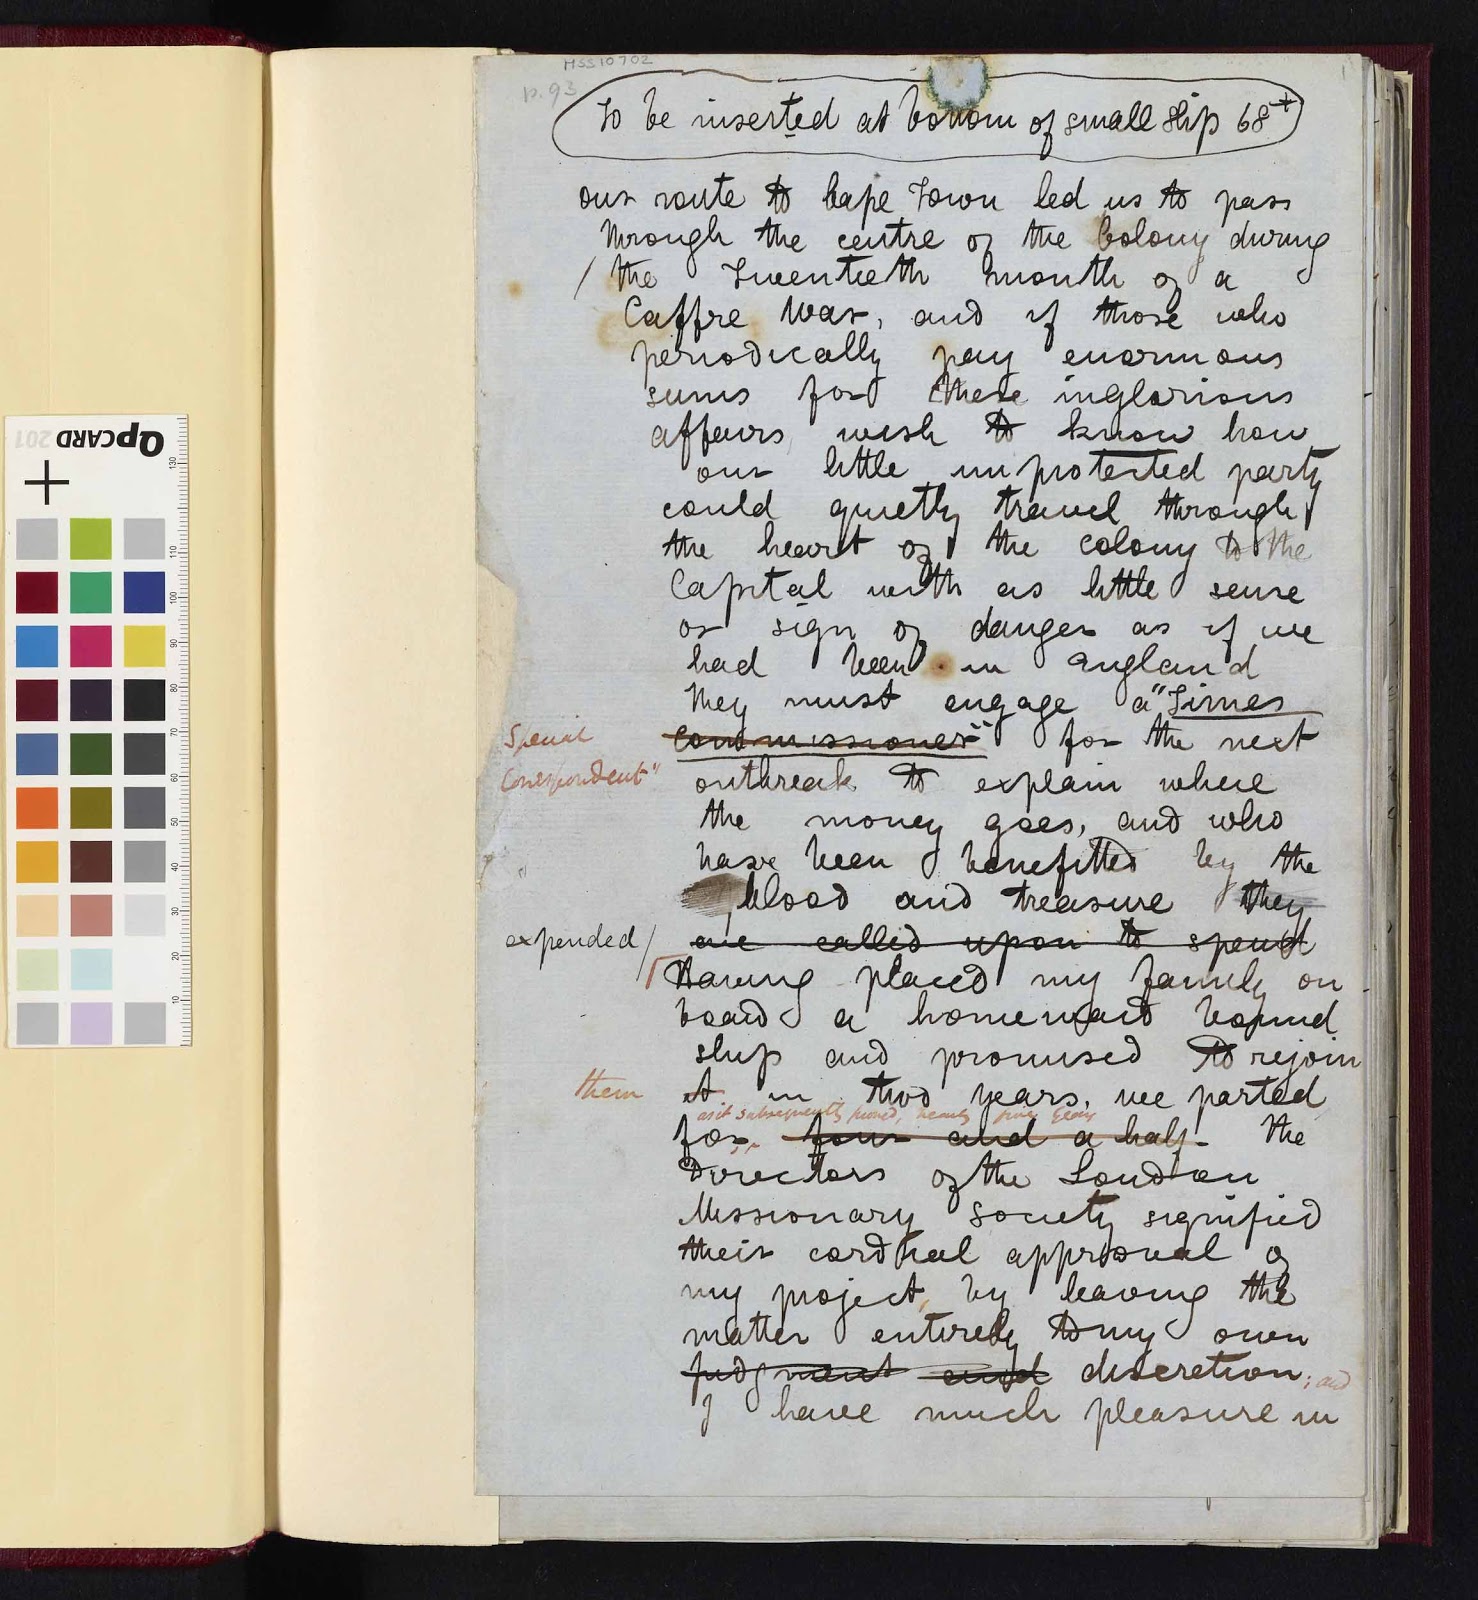 MSS10702
p. 93
1
To be inserted at bottom of small slip 68+
our route to Cape Town led us to pass
through the centre of the Colony during
/ the Twentieth month of a
Caffre War, and if those who
periodically pay enormous
sums for these inglorious
affairs wish to know how
our little unprotected party
could quietly travel through
the heart of the colony to the
Capital with as little sense
or sign of danger as if we
had been in England
they must engage a "Times
Special
Correspondent"
commissioner" for the next
outbreak to explain where
the money goes, and who
have been benefitted by the
blood and treasure they
expended /
are called upon to spend
Having placed my family on
board a homeward bound
ship and promised to rejoin
them
it in two years, we parted
as it subsequently proved, nearly five years
for four and a half. The
Directors of the London
Missionary Society signified
their cordial approval of
my project, by leaving the
matter entirely to my own
judgment and discretion; and
I have much pleasure in
QPCARD 201
130
110
100
90
80
70
60
50
40
30
20
10